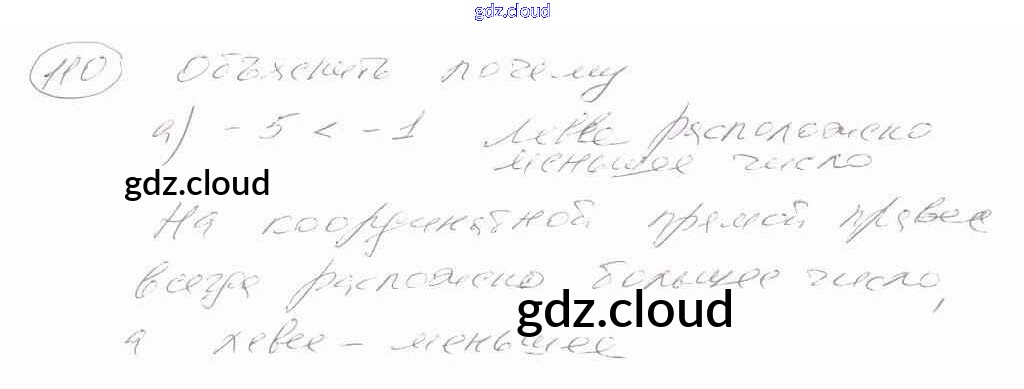 gdz.cloud
110 Объяснить почему
а) -5 < -1 левее расположено
меньшее число
gdz.cloud
На координатной прямой правее
всегда расположено большее число,
gdz.cloud
а левее - меньшее